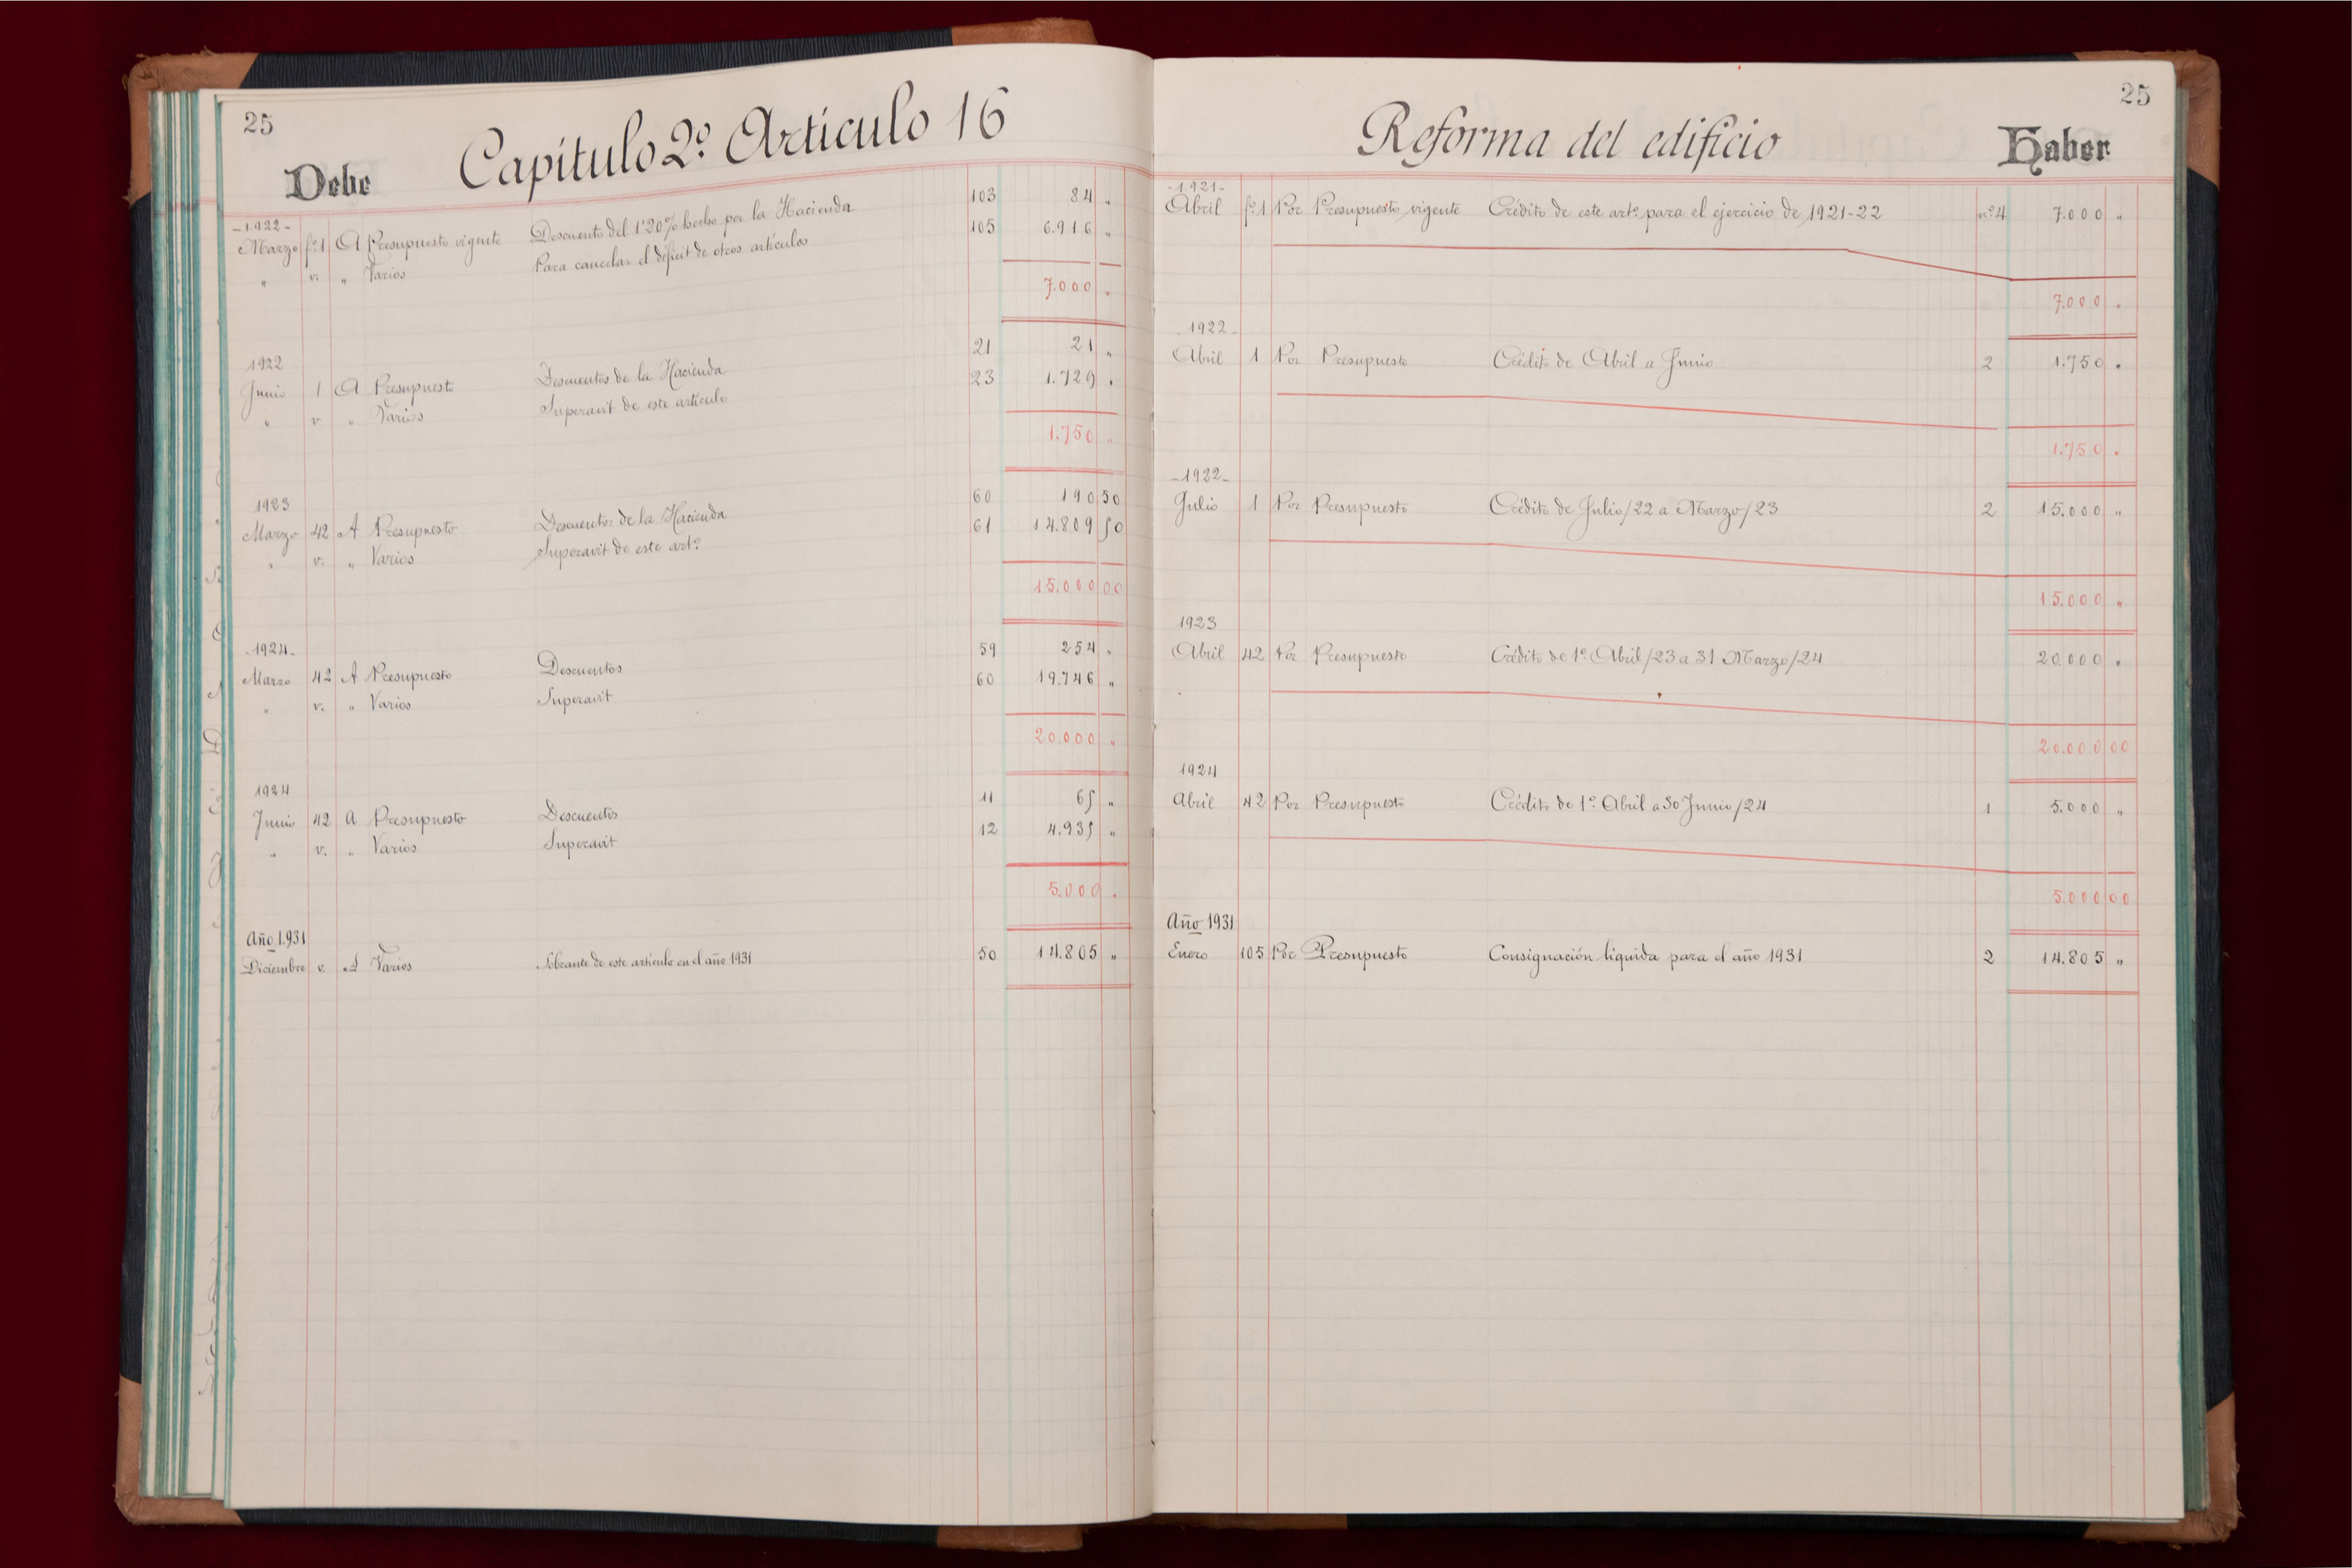 25
Debe Capítulo 2º. Artículo 16
-1.922-
Marzo fº1 A Presupuesto vigente Descuento del 1'20% hecho por la Hacienda 103 84 "
" v. " Varios Para cancelar el déficit de otros artículos 105 6.916 "
7.000 "
1922
Junio 1 A Presupuesto Descuentos de la Hacienda 21 21 "
" v " Varios Superavit de este artículo 23 1.729 "
1.750 "
1923
Marzo 42 A Presupuesto Descuentos de la Hacienda 60 190 50
" v. " Varios Superavit de este artº 61 14.809 50
15.000 00
-1924-
Marzo 42 A Presupuesto Descuentos 59 254 "
" v. " Varios Superavit 60 19.746 "
20.000 "
1924
Junio 42 A Presupuesto Descuentos 11 65 "
" v. " Varios Superavit 12 4.935 "
5.000 "
Año 1.931
Diciembre v. A Varios Sobrante de este artículo en el año 1931 50 14.805 "
25
Reforma del edificio Haber
-1.921-
Abril fº1 Por Presupuesto vigente Crédito de este artº para el ejercicio de 1921-22 nº4 7.000 "
7.000 "
-1922-
Abril 1 Por Presupuesto Crédito de Abril a Junio 2 1.750 "
1.750 "
-1922-
Julio 1 Por Presupuesto Crédito de Julio/22 a Marzo/23 2 15.000 "
15.000 "
1923
Abril 42 Por Presupuesto Crédito de 1º. Abril/23 a 31 Marzo/24 20.000 "
20.000 00
1924
Abril 42 Por Presupuesto Crédito de 1º. Abril a 30 Junio/24 1 5.000 "
5.000 00
Año 1931
Enero 105 Por Presupuesto Consignación líquida para el año 1931 2 14.805 "